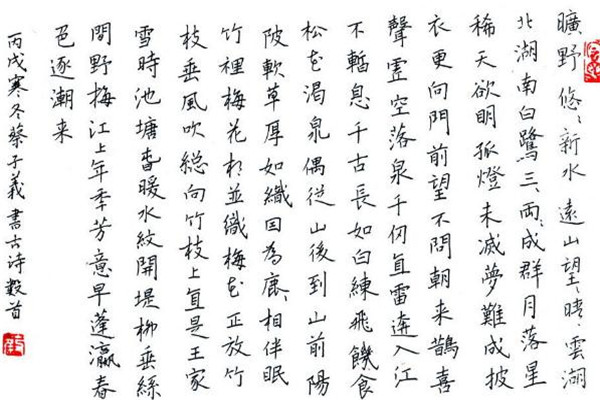 曠野悠、新水遠山望、晴、雲湖
北湖南白鷺三、兩、成群月落星
稀天欲明孤燈未滅夢難成披
衣更向門前望不問朝来鵲喜
聲虛空落泉千仞直雷奔入江
不暫息千古長如白練飛饑食
松花渴泉偶從山後到山前陽
陂軟草厚如織因為鹿、相伴眠
竹裡梅花相並織梅花正放竹
枝垂風吹総向竹枝上直是王家
雪時池塘春暖水紋開堤柳垂絲
間野梅江上年季芳意早蓬瀛春
色逐潮来
丙戌寒冬蔡子義書古诗數首